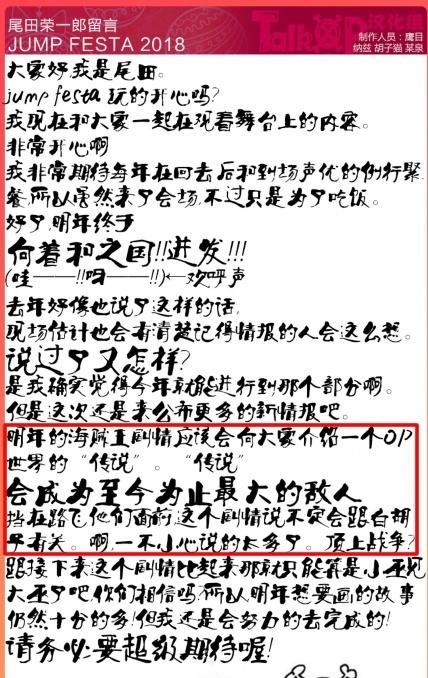 尾田荣一郎留言
JUMP FESTA 2018
TalkOP汉化组
制作人员：鹰目
纳兹 胡子猫 某泉
大家好我是尾田。
jump festa 玩的开心吗?
我现在和大家一起在观看舞台上的内容。
非常开心啊
我非常期待每年在回去后和到场声优的例行聚
餐,所以虽然来了会场,不过只是为了吃饭。
好了,明年终于
向着和之国!!进发!!!
(哇———!!呀——!!)←欢呼声
去年好像也说了这样的话,
现场估计也会有清楚记得情报的人会这么想。
说过了又怎样?
是我确实觉得今年就能进行到那个部分啊。
但是这次还是来公布更多的新情报吧。
明年的海贼王剧情应该会向大家介绍一个OP
世界的“传说”。“传说”
会成为至今为止最大的敌人
挡在路飞他们面前,这个剧情说不定会跟白胡
子有关。啊,一不小心说的太多了。顶上战争?
跟接下来这个剧情比起来那就只能算是小巫见
大巫了吧,你们相信吗,所以明年想要画的故事
仍然十分的多!但我还是会努力的去完成的!
请务必要超级期待喔!